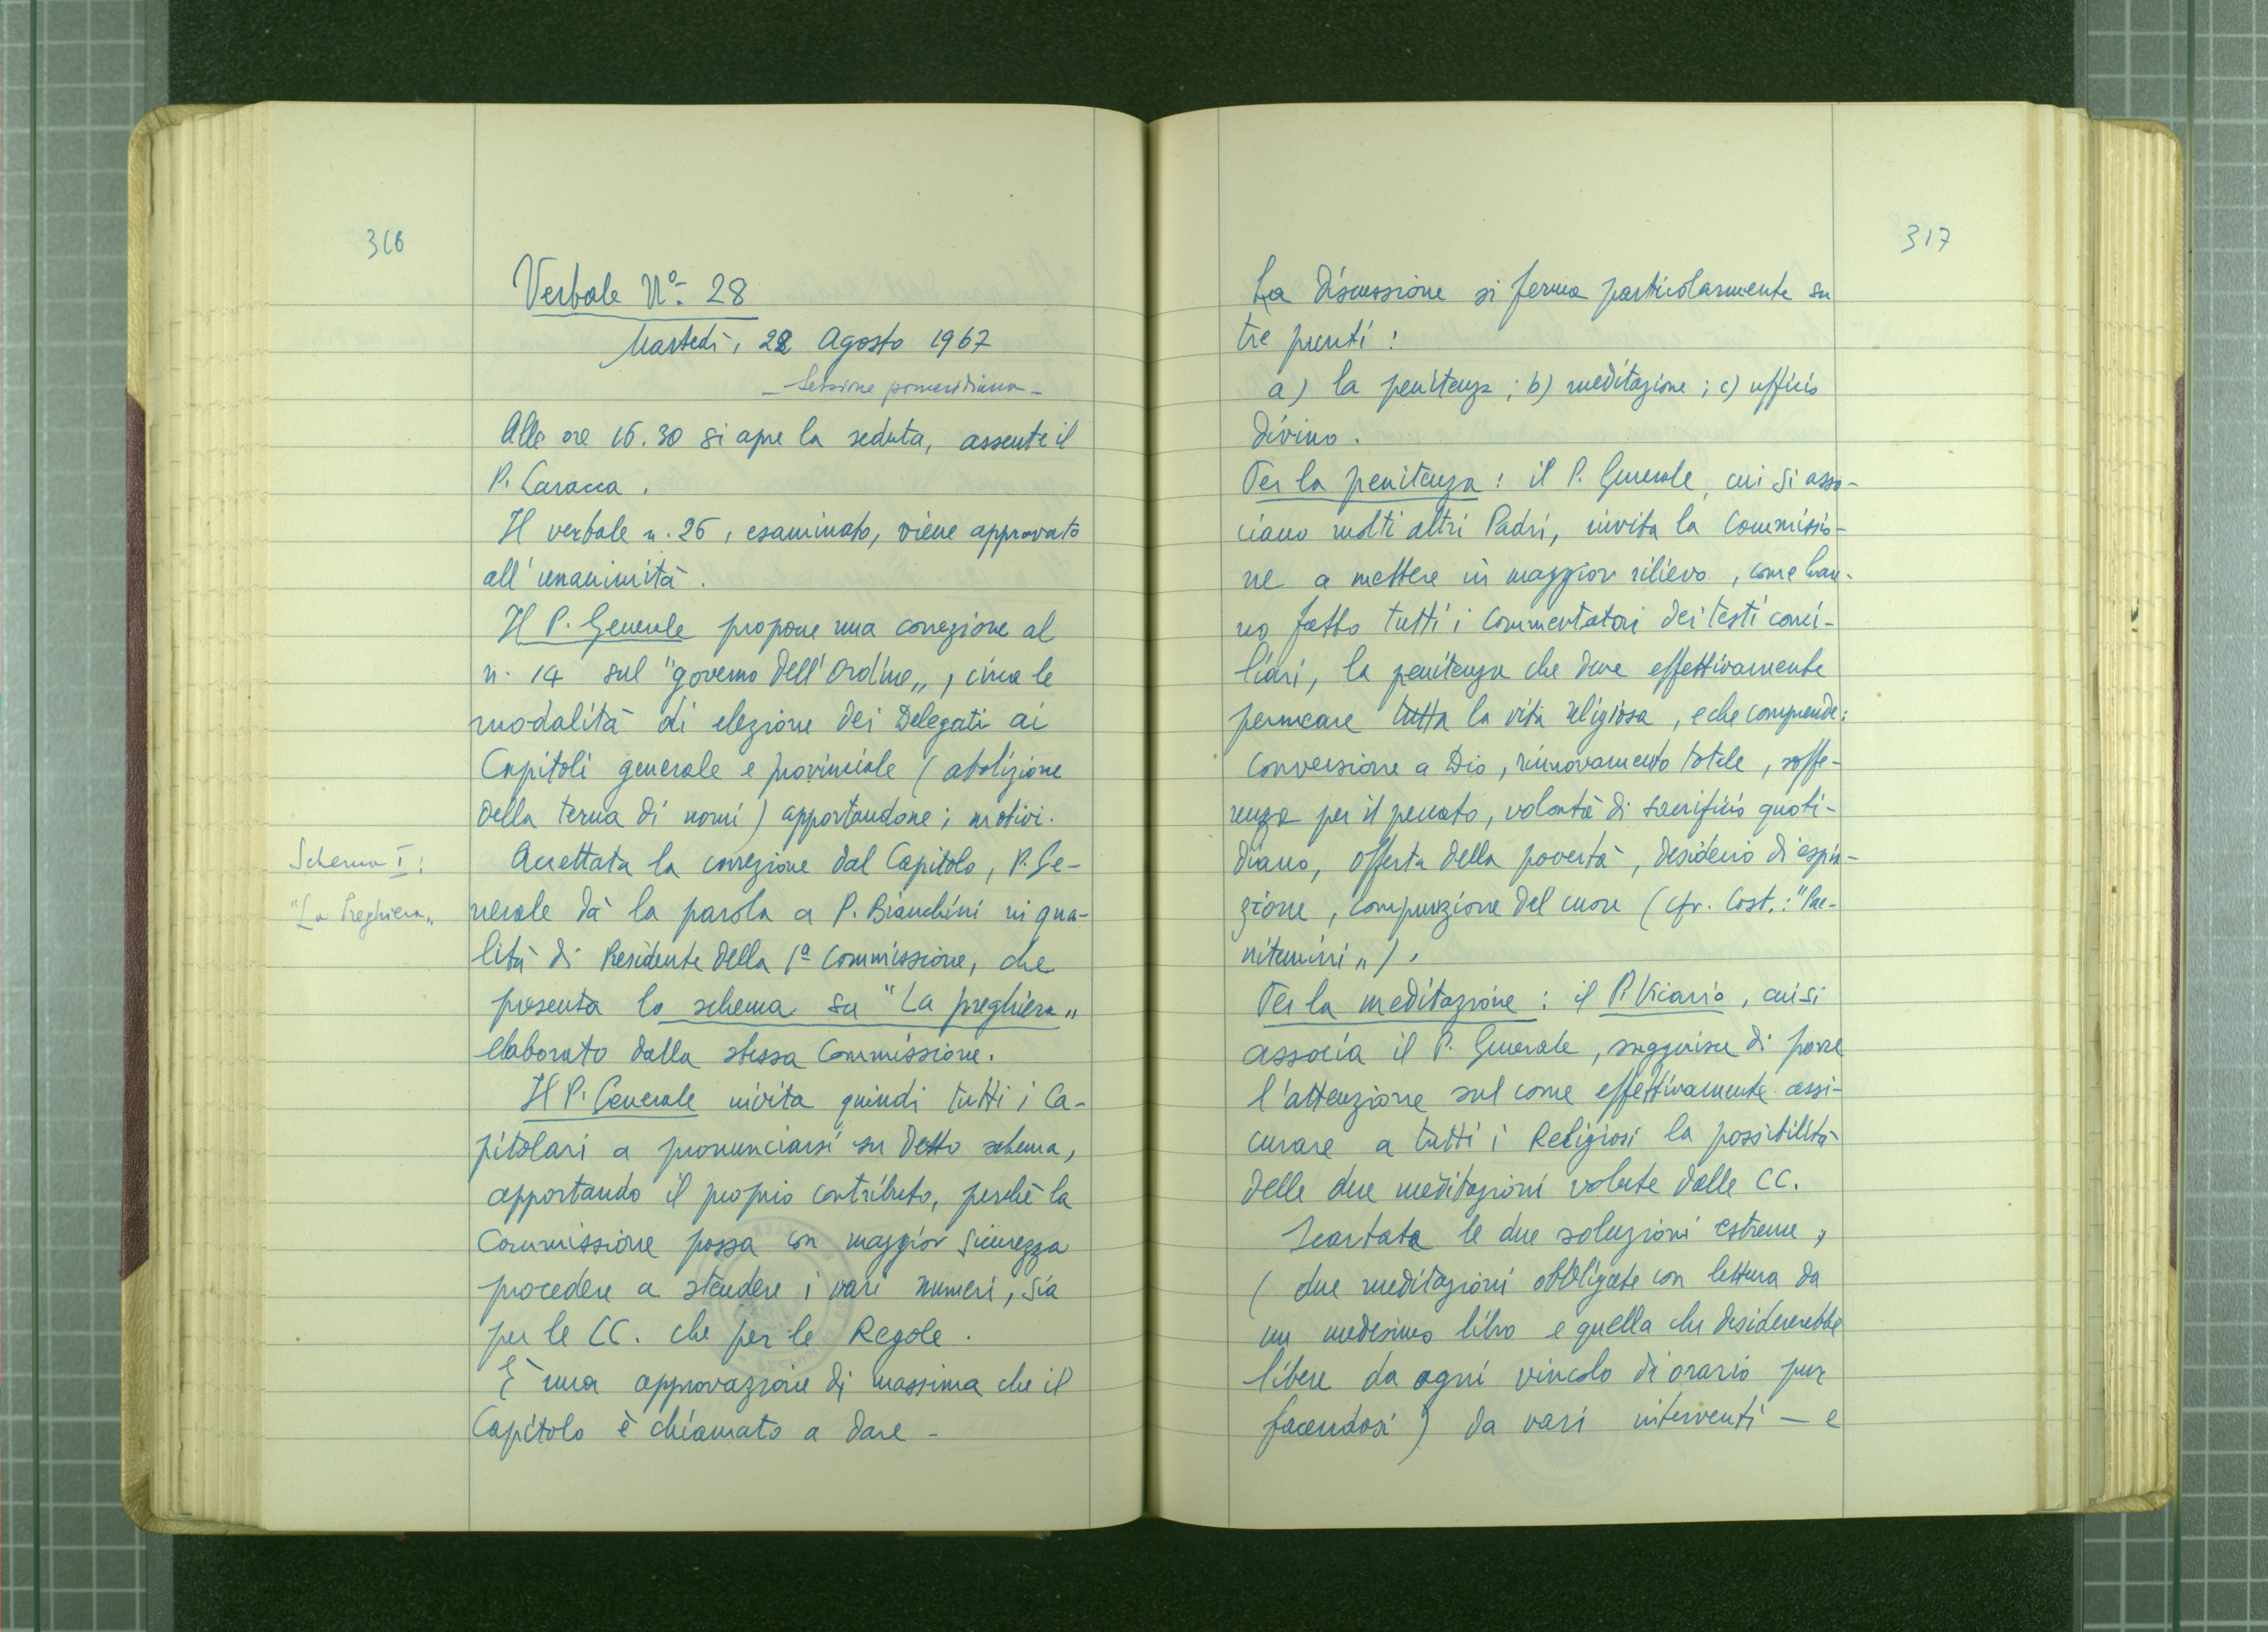 316
Verbale N.° 28
Martedì, 22 Agosto 1967
- Sessione pomeridiana -
Alle ore 16.30 si apre la seduta, assente il
P. Caracca.
Il verbale n. 26, esaminato, viene approvato
all'unanimità.
Il P. Generale propone una correzione al
n. 14 sul "governo dell'Ordine„, circa le
modalità di elezione dei Delegati ai
Capitoli generale e provinciale (abolizione
della terna di nomi) apportandone i motivi.
Schema I:
"La Preghiera„
Accettata la correzione dal Capitolo, P. Ge-
nerale dà la parola a P. Bianchini in qua-
lità di Presidente della 1ª Commissione, che
presenta lo schema su "La preghiera„
elaborato dalla stessa Commissione.
Il P. Generale invita quindi tutti i Ca-
pitolari a pronunciarsi su detto schema,
apportando il proprio contributo, perchè la
Commissione possa con maggior sicurezza
procedere a stendere i vari numeri, sia
per le CC. che per le Regole.
È una approvazione di massima che il
Capitolo è chiamato a dare -
317
La discussione si ferma particolarmente su
tre punti:
a) la penitenza; b) meditazione; c) ufficio
divino.
Per la penitenza: il P. Generale, cui si asso-
ciano molti altri Padri, invita la Commissio-
ne a mettere in maggior rilievo, come han-
no fatto tutti i Commentatori dei testi conci-
liari, la penitenza che deve effettivamente
permeare tutta la vita religiosa, e che comprende:
conversione a Dio, rinnovamento totale, soffe-
renza per il peccato, volontà di sacrificio quoti-
diano, offerta della povertà, desiderio di espia-
zione, compunzione del cuore (cfr. Cost.: "Pae-
nitemini„).
Per la meditazione: il P. Vicario, cui si
associa il P. Generale, suggerisce di porre
l'attenzione sul come effettivamente assi-
curare a tutti i Religiosi la possibilità
delle due meditazioni volute dalle CC.
Scartata le due soluzioni estreme,
(due meditazioni obbligate con lettura da
un medesimo libro e quella che desidererebbe
libere da ogni vincolo di orario pur
facendosi) da vari interventi - e